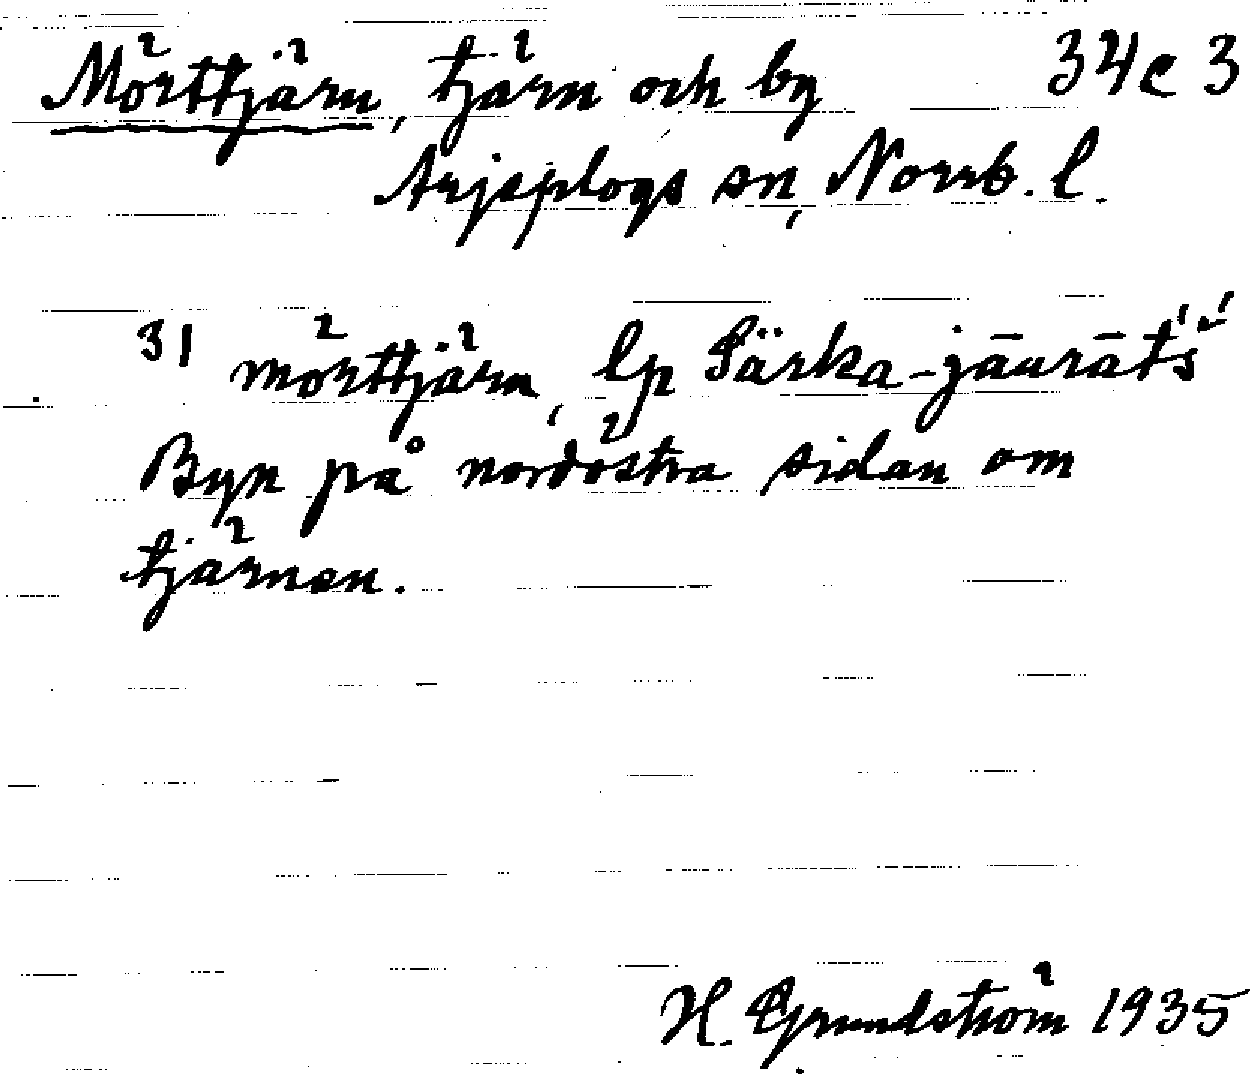 Mörttjärn, tjärn och by 34c3
Arjeplogs sn, Norrb. l.
31 mörttjärn, lp Särka-jāurātś
Byn på nordöstra sidan om
tjärnen.
H. Grundström 1935